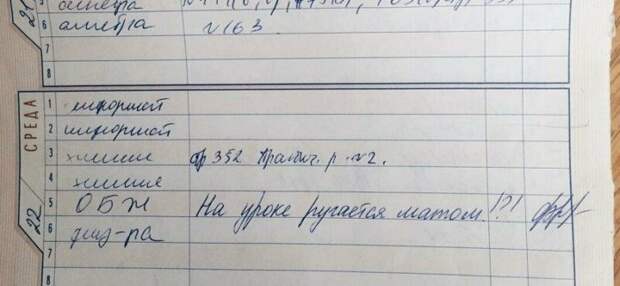 5 алгебра
6 алгебра №163
7
8
СРЕДА
22
1 информат
2 информат
3 химия стр 352 Практич. р. №2.
4 химия
5 ОБЖ На уроке ругается матом!?!
6 физ-ра
7
8